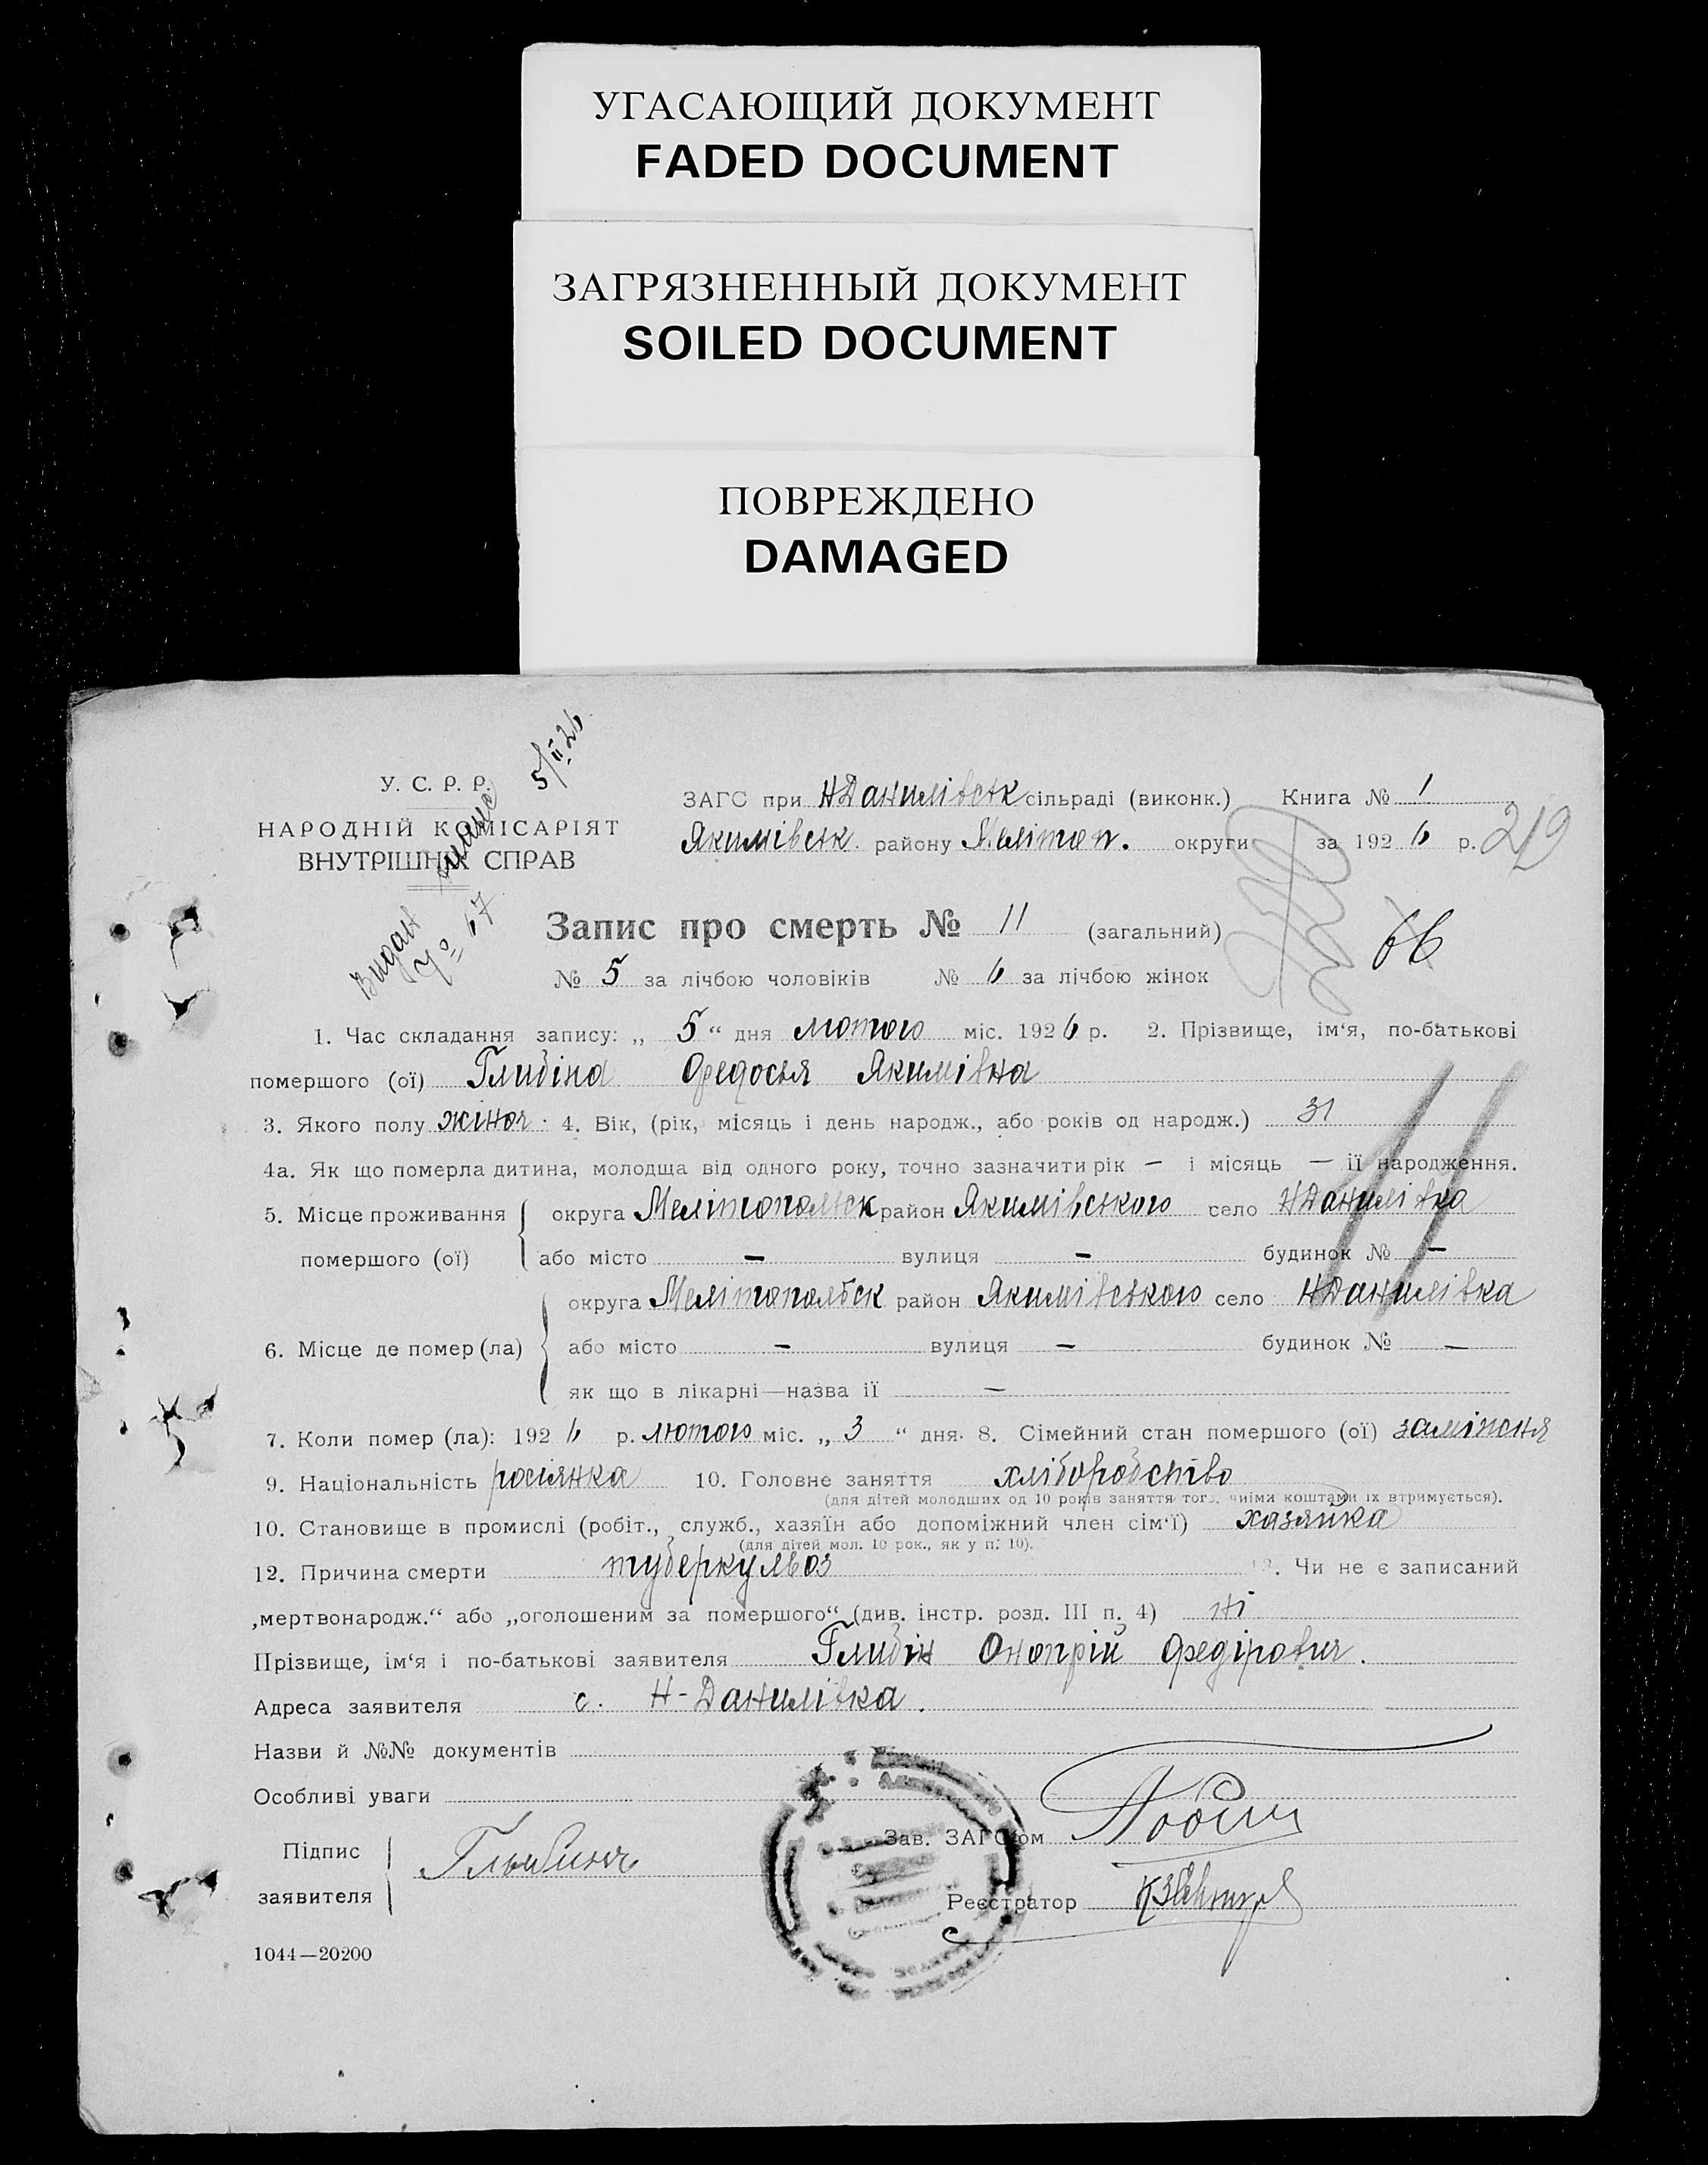 УГАСАЮЩИЙ ДОКУМЕНТ
FADED DOCUMENT
ЗАГРЯЗНЕННЫЙ ДОКУМЕНТ
SOILED DOCUMENT
ПОВРЕЖДЕНО
DAMAGED
У. С. Р. Р.
НАРОДНІЙ КОМІСАРІЯТ
ВНУТРІШНІХ СПРАВ
Видан
№ 67
5/II 26
ЗАГС при НДанилівськ сільраді (виконк.) Книга № 1
Якимівськ. району Мелітоп. округи за 1926 р. 219
Запис про смерть № 11 (загальний)
66
№ 5 за лічбою чоловіків № 6 за лічбою жінок
1. Час складання запису: „ 5 “ дня лютого міс. 1926 р. 2. Прізвище, ім‘я, по-батькові
помершого (ої) Глибіна Федосья Якимівна
3. Якого полу жіноч. 4. Вік, (рік, місяць і день народж., або років од народж.) 31
4а. Як що померла дитина, молодща від одного року, точно зазначити рік — і місяць — її народження.
5. Місце проживання помершого (ої)
округа Мелітопольск район Якимівського село НДанилівка
або місто — вулиця — будинок № —
6. Місце де помер (ла)
округа Мелітопольск район Якимівського село НДанилівка
або місто — вулиця — будинок № —
як що в лікарні—назва її —
7. Коли помер (ла): 1926 р. лютого міс. „ 3 “ дня. 8. Сімейний стан помершого (ої) заміжня
9. Національність росіянка 10. Головне заняття хліборобство
(для дітей молодших од 10 років заняття того, чиїми коштами їх втримується).
10. Становище в промислі (робіт., служб., хазяїн або допоміжний член сім‘ї) хазяйка
(для дітей мол. 10 рок., як у п. 10).
12. Причина смерти туберкульоз 13. Чи не є записаний
„мертвонародж.“ або „оголошеним за помершого“ (див. інстр. розд. III п. 4) ні
Прізвище, ім‘я і по-батькові заявителя Глибін Онопрій Федірович.
Адреса заявителя с. Н-Данилівка.
Назви й №№ документів
Особливі уваги
Підпис
заявителя
Зав. ЗАГС‘ом
Реєстратор
1044—20200